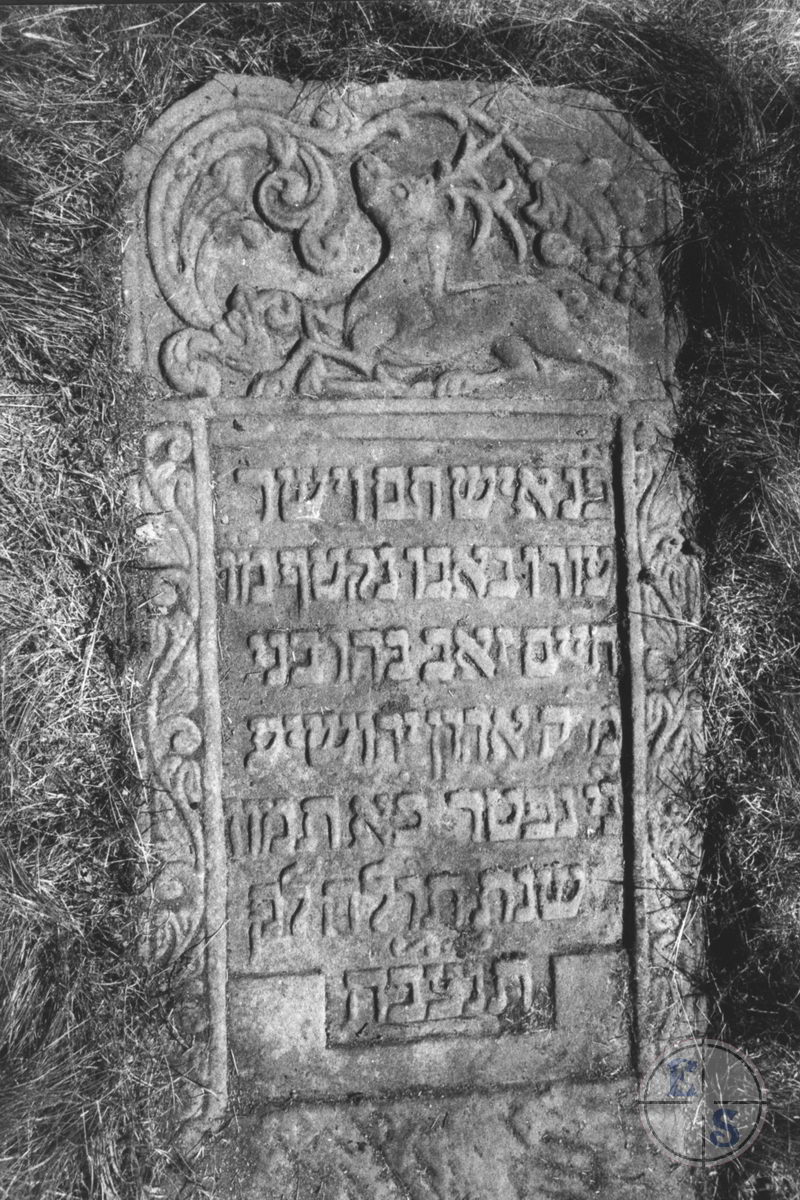 פנ איש תם וישר
עודו באבו נקטף מו
חיים זאב בהרבני
מ ק אהרן יהושיע
ני נפטר כא תמוז
שנת תרלה לפ
תנצבה
E S